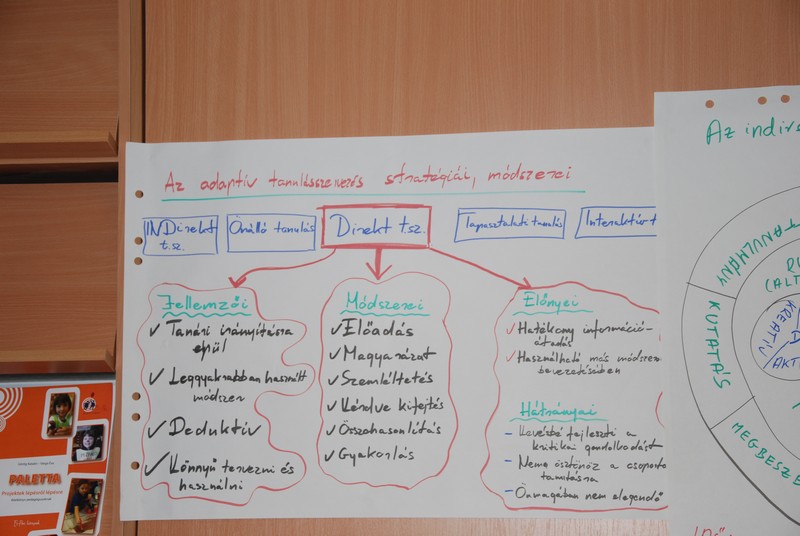 Az adaptív tanulásszervezés stratégiái, módszerei
INDirekt
t.sz.
Önálló tanulás
Direkt t.sz.
Tapasztalati tanulás
Interaktív t
Jellemzői
✓ Tanári irányításra
épül
✓ Leggyakrabban használt
módszer
✓ Deduktív
✓ Könnyű tervezni és
használni
Módszerei
✓ Előadás
✓ Magyarázat
✓ Szemléltetés
✓ Kérdve kifejtés
✓ Összehasonlítás
✓ Gyakorlás
Előnyei
✓ Hatékony információ-
átadás
✓ Használható más módszerek
bevezetésében
Hátrányai
- Kevésbé fejleszti a
kritikai gondolkodást
- Nem ösztönöz a csoportos
tanításra
- Önmagában nem elegendő
Az indire
TANULMÁNY
KUTATÁS
MEGBESZÉ
KREATÍV
AKTI
PALETTA
Projektek lépésről lépésre